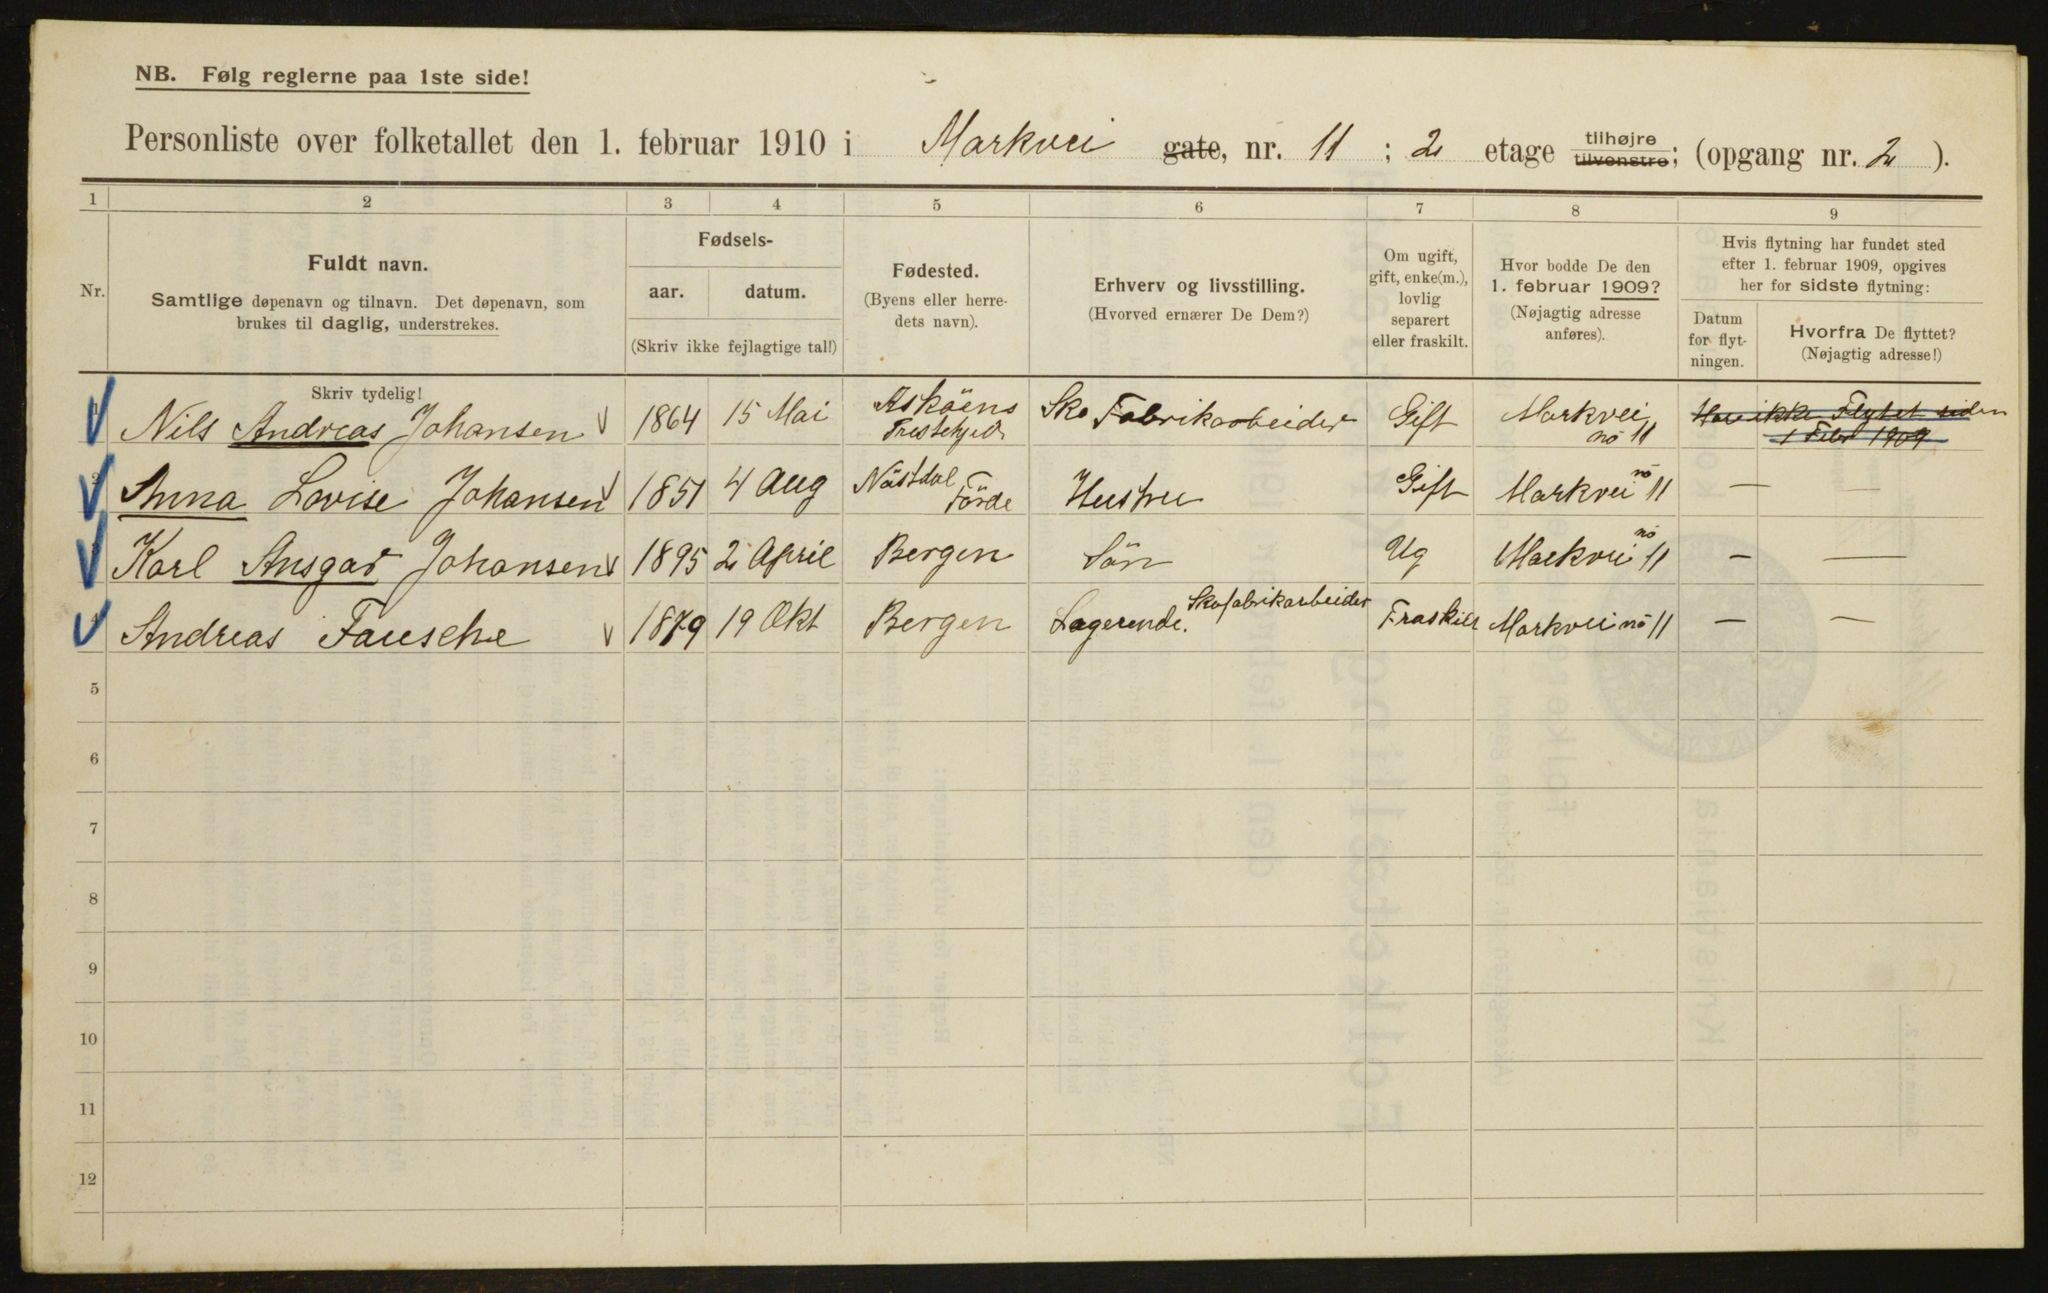 NB. Følg reglerne paa 1ste side!
Personliste over folketallet den 1. februar 1910 i Markvei gate, nr. 11 ; 2 etage tilhøjre tilvenstre; (opgang nr. 2 ).
1 2 3 4 5 6 7 8 9
Nr.
Fuldt navn.
Samtlige døpenavn og tilnavn. Det døpenavn, som
brukes til daglig, understrekes.
Fødsels-
aar. datum.
(Skriv ikke fejlagtige tal!)
Fødested.
(Byens eller herre-
dets navn).
Erhverv og livsstilling.
(Hvorved ernærer De Dem?)
Om ugift,
gift, enke(m.),
lovlig
separert
eller fraskilt.
Hvor bodde De den
1. februar 1909?
(Nøjagtig adresse
anføres).
Hvis flytning har fundet sted
efter 1. februar 1909, opgives
her for sidste flytning:
Datum
for flyt-
ningen.
Hvorfra De flyttet?
(Nøjagtig adresse!)
Skriv tydelig!
1 Nils Andreas Johansen 1864 15 Mai Asköens Sko Fabrikarbeider Gift Markvei nö 11 Har ikke Flytet siden 1 Febr 1909
2 Anna Lovise Johansen 1851 4 Aug Nöstdal Förde Hustru Gift Markvei nö 11 — —
3 Karl Ansgar Johansen 1895 2 April Bergen Sön Ug Markvei nö 11 — —
4 Andreas Fausche 1879 19 Okt Bergen Logerende. Skofabrikarbeider Fraskilt Markvei nö 11 — —
5
6
7
8
9
10
11
12